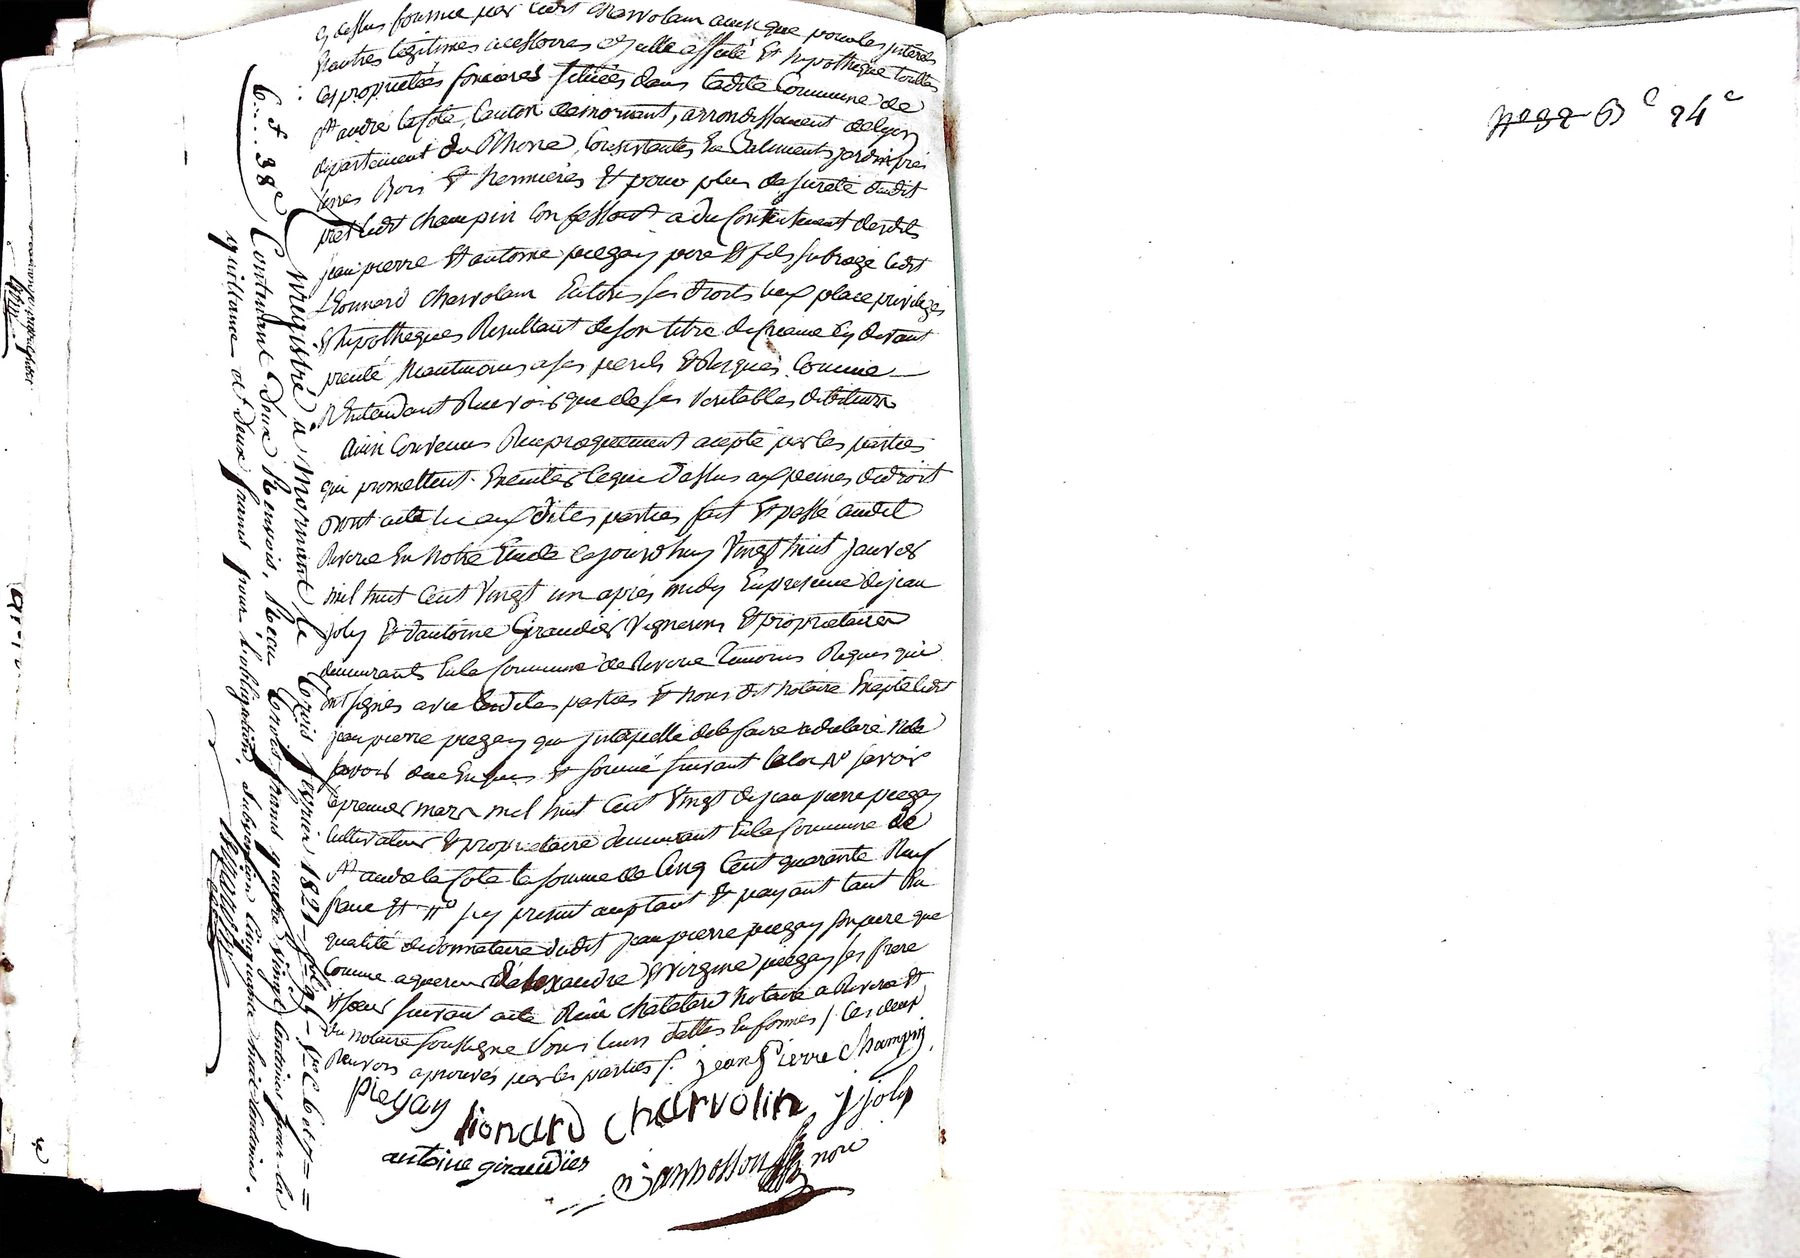 cy dessus fournie par ledit charvolain ainsi que pour les interets
& autres legitimes accessoires il a affecté et hypothequé toutes
ses proprietées foncieres situées dans ladite Commune de
st andré la Cote, Canton demornant, arrondissement delyon
departement du Rhone, Consistantes En Batiments jardin prés
terres Bois Et hermieres Et pour plus de sureté dudit
pret ledit champin Confessant a du Consentement desdits
jean pierre Et antoine piegay pere Et fils subrogé ledit
Leonard charvolain En tous ses droits lieux place privileges
Et hypotheques Resultant de son titre de Creance Cy devant
a ses perils Et Risques Comme
N'Entendant Recevoir que de ses veritables debiteurs
ainsi Convenu Reciproquement acepté par les parties
qui promettent Executer Ceque dessus aux peines dedroit
dont acte lu aux dites parties fait Et passé audit
Riverie En notre Etude Cejourd'huy Vingt huit janvier
mil huit Cent Vingt un aprés midy En presence de jean
joly Et d'antoine Giraudier Vignerons Et proprietaires
demeurants En la Commune de Riverie temoins Requis qui
ont signés avec lesdites parties Et nous dit notaire Excepté ledit
jean pierre piegay qui de le faire a declaré ne le
savoir Enquis Et sommé suivant la loi No savoir
le premier mars mil huit Cent Vingt de jean pierre piegay
Cultivateur Et proprietaire demeurant En la Commune de
st andré la Cote la somme de Cinq Cent quarante Neuf
franc Et No icy present aceptant Et payant tant En
qualité de donnataire dudit jean pierre piegay son pere que
Comme aquereur d'alexandre Et virginie piegay ses frere
Et soeur suivant acte Recu chatelard Notaire a Riverie Et
du notaire soussigné sous leurs dattes En formes /. les deux
Renvois aprouvés par les parties /. jean Pierre Champin
Piegay
lionard Charvolin j joly
antoine giraudier
janbosson nore
6 f .. 38 c
Enregistré a Mornant le trois fevrier 1821 fol 95 Vo C 6 et 7 = =
Contenant deux Renvois. Recu trois francs quatre vingt centimes pour la
quittance et deux francs pour l'obligation, subrogation Cinquante huit centimes.
63 c 24 c